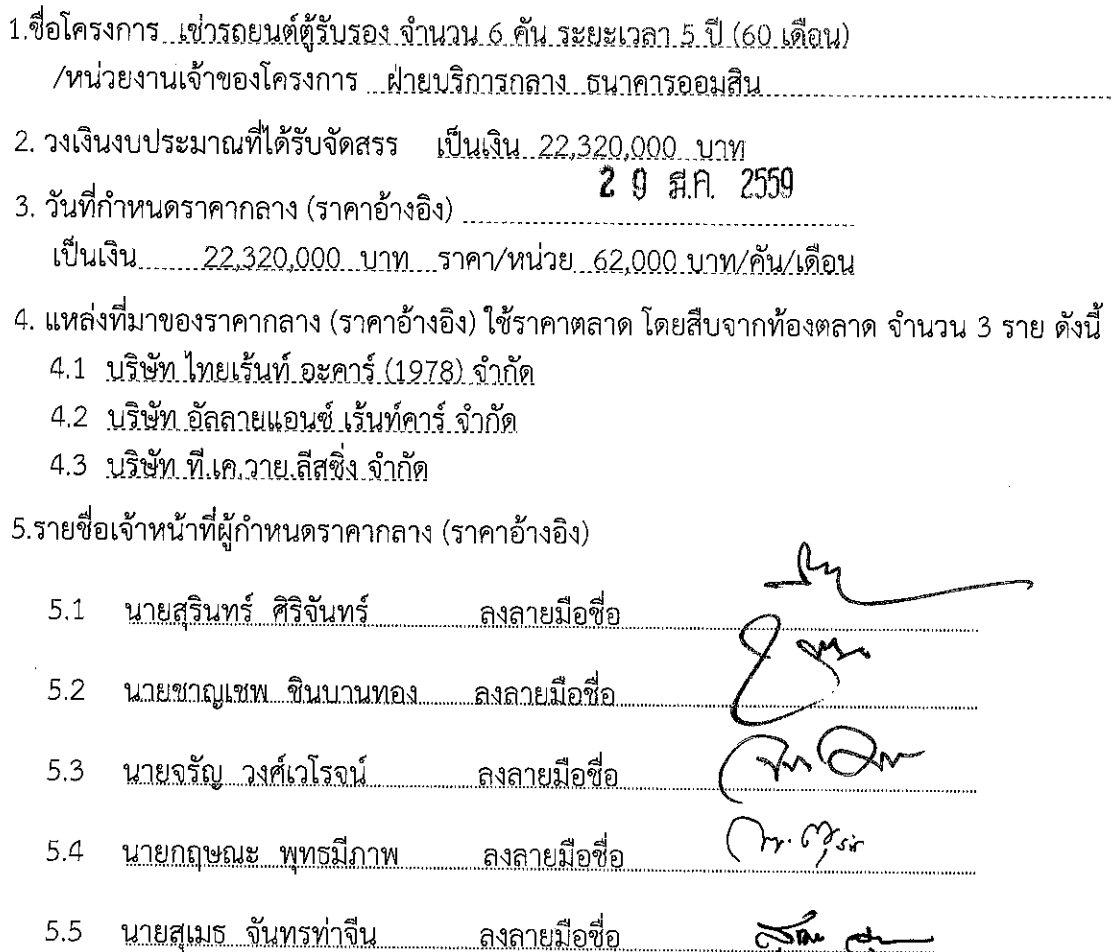 1.ชื่อโครงการ เช่ารถยนต์ตู้รับรอง จำนวน 6 คัน ระยะเวลา 5 ปี (60 เดือน)
/หน่วยงานเจ้าของโครงการ ฝ่ายบริการกลาง ธนาคารออมสิน
2. วงเงินงบประมาณที่ได้รับจัดสรร เป็นเงิน 22,320,000 บาท
3. วันที่กำหนดราคากลาง (ราคาอ้างอิง) 29 มี.ค. 2559
เป็นเงิน 22,320,000 บาท ราคา/หน่วย 62,000 บาท/คัน/เดือน
4. แหล่งที่มาของราคากลาง (ราคาอ้างอิง) ใช้ราคาตลาด โดยสืบจากท้องตลาด จำนวน 3 ราย ดังนี้
4.1 บริษัท ไทยเร้นท์ อะคาร์ (1978) จำกัด
4.2 บริษัท อัลลายแอนซ์ เร้นท์คาร์ จำกัด
4.3 บริษัท ที.เค.วาย.ลีสซิ่ง จำกัด
5.รายชื่อเจ้าหน้าที่ผู้กำหนดราคากลาง (ราคาอ้างอิง)
5.1 นายสุรินทร์ ศิริจันทร์ ลงลายมือชื่อ
5.2 นายชาญเชพ ชินบานทอง ลงลายมือชื่อ
5.3 นายจรัญ วงศ์เวโรจน์ ลงลายมือชื่อ
5.4 นายกฤษณะ พุทธมีภาพ ลงลายมือชื่อ
5.5 นายสุเมธ จันทรท่าจีน ลงลายมือชื่อ